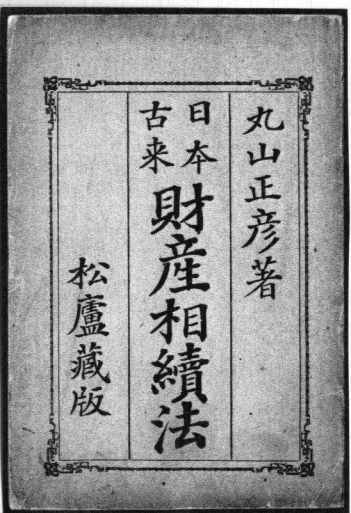 丸山正彦著
日本
古来
財産相續法
松廬藏版